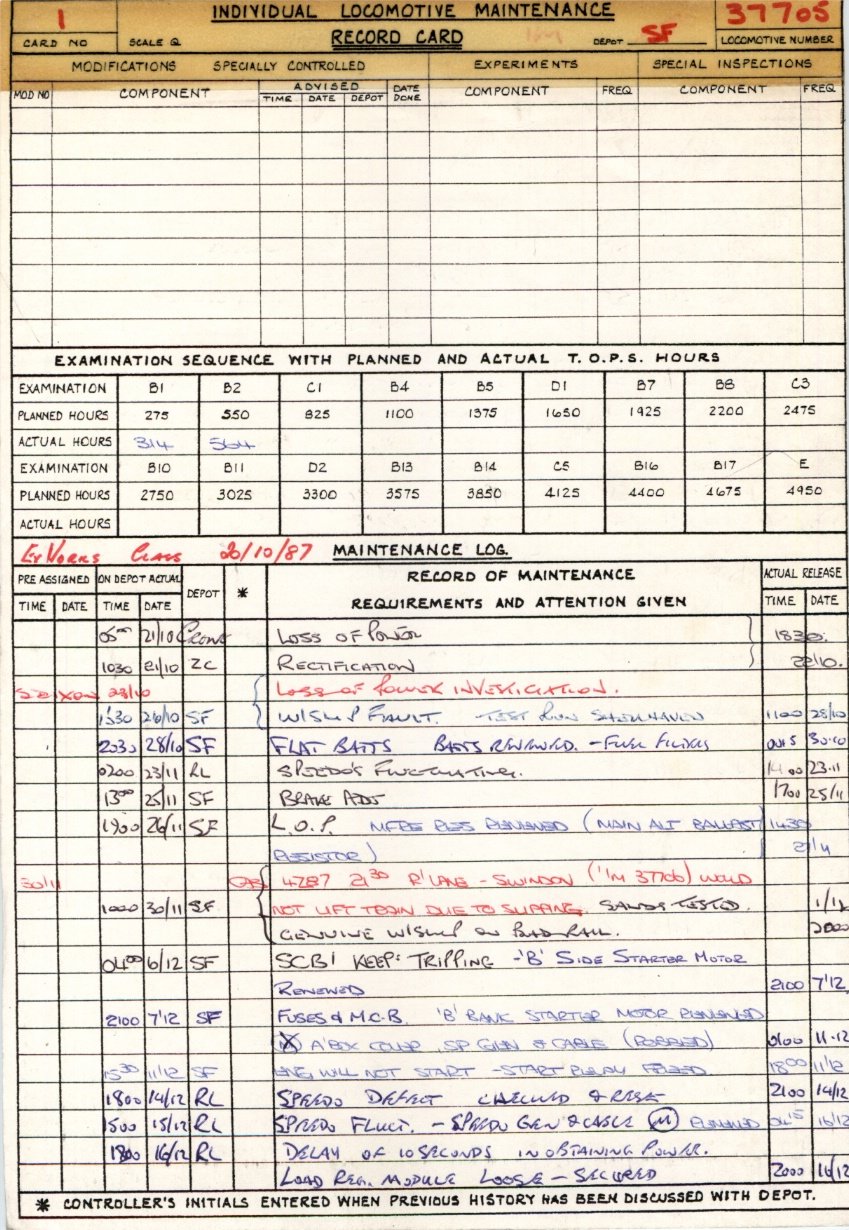 1 INDIVIDUAL LOCOMOTIVE MAINTENANCE 37705
CARD NO SCALE Q RECORD CARD DEPOT SF LOCOMOTIVE NUMBER
MODIFICATIONS SPECIALLY CONTROLLED EXPERIMENTS SPECIAL INSPECTIONS
MOD NO COMPONENT ADVISED DATE DONE COMPONENT FREQ COMPONENT FREQ
TIME DATE DEPOT
EXAMINATION SEQUENCE WITH PLANNED AND ACTUAL T.O.P.S. HOURS
EXAMINATION B1 B2 C1 B4 B5 D1 B7 B8 C3
PLANNED HOURS 275 550 825 1100 1375 1650 1925 2200 2475
ACTUAL HOURS 314 564
EXAMINATION B10 B11 D2 B13 B14 C5 B16 B17 E
PLANNED HOURS 2750 3025 3300 3575 3850 4125 4400 4675 4950
ACTUAL HOURS
Ex Works Class 20/10/87 MAINTENANCE LOG.
PRE ASSIGNED ON DEPOT ACTUAL DEPOT * RECORD OF MAINTENANCE ACTUAL RELEASE
TIME DATE TIME DATE REQUIREMENTS AND ATTENTION GIVEN TIME DATE
0500 21/10 LOSS OF POWER 1830
1030 21/10 ZC RECTIFICATION 22/10.
28/10 LOSS OF POWER INVESTIGATION.
1330 26/10 SF W/SLIP FAULT. TEST RUN 1100 28/10
2030 28/10 SF FLAT BATTS BATTS RENEWED. - FUEL 0015 30.10
0200 23/11 RL SPEEDO'S FLUCTUATING. 1400 23.11
1300 25/11 SF BRAKE ADJ 1700 25/11
1900 26/11 SF L.O.P. RES RENEWED (MAIN ALT BALLAST 1430
RESISTOR)
30/11 4Z87 2130 R'LANE - SWINDON ('/M 37706) WOULD
1000 30/11 SF NOT LIFT TRAIN DUE TO SLIPPING. SANDS TESTED. 1/12
GENUINE W/SLIP ON BAD RAIL. 2000
0400 6/12 SF SCB1 KEEP: TRIPPING - 'B' SIDE STARTER MOTOR
RENEWED 2100 7'12
2100 7'12 SF FUSES & M.C.B. 'B' BANK STARTER MOTOR RENEWED
A'BOX COVER SP GEN & CABLE (ROBBED) 0100 11.12
1530 11/12 SF ENG WILL NOT START - START RELAY FREED 1800 11/12
1800 14/12 RL SPEEDO DEFECT CHECKED & 2100 14/12
1500 15/12 RL SPEEDO FLUCT. - SPEEDO GEN & CABLE (M) RENEWED 0415 16/12
1800 16/12 RL DELAY OF 10 SECONDS IN OBTAINING POWER.
LOAD REG. MODULE LOOSE - SECURED 2000 16/12
* CONTROLLER'S INITIALS ENTERED WHEN PREVIOUS HISTORY HAS BEEN DISCUSSED WITH DEPOT.